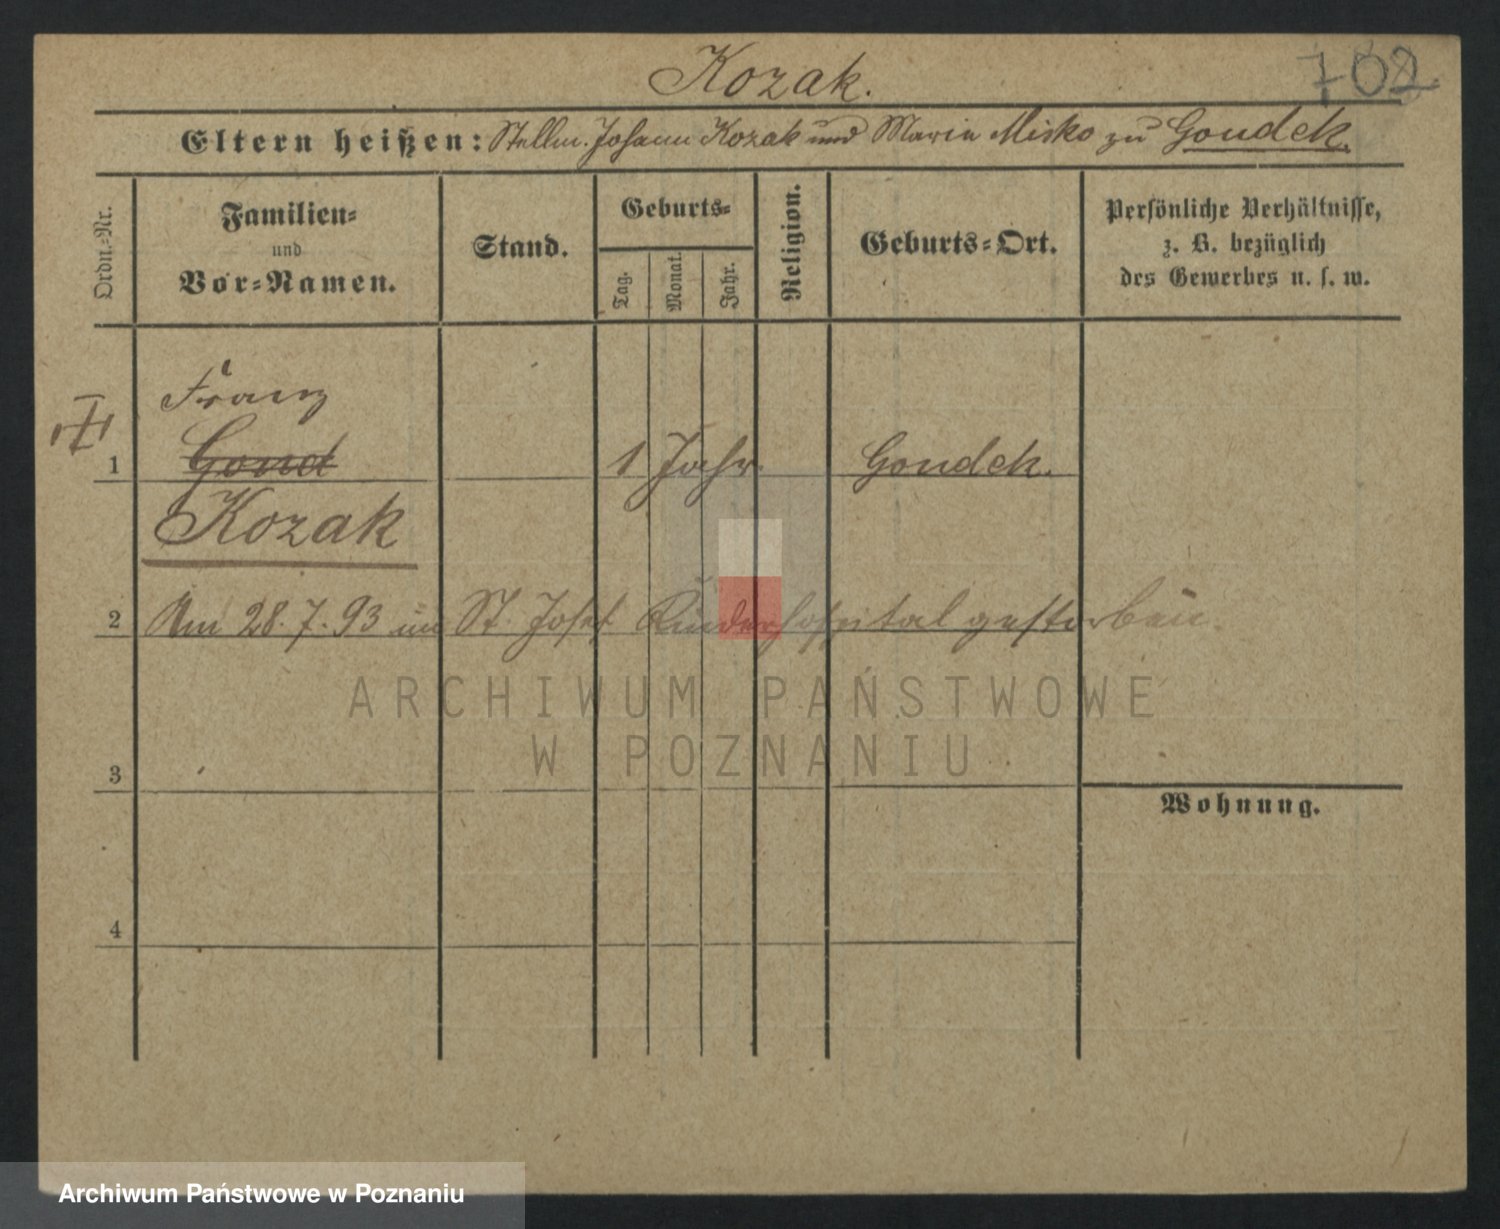 Kozak.
702
Eltern heißen: Stellm. Johann Kozak und Maria Misko zu Gondek.
Ordn.-Nr.
Familien-
und
Vor-Namen.
Stand.
Geburts-
Tag.
Monat.
Jahr.
Religion.
Geburts-Ort.
Persönliche Verhältnisse,
z. B. bezüglich
des Gewerbes u. s. w.
Franz
1 Gond 1 Jahr. Gondek.
Kozak
2 Am 28.7.93 im St. Josef Kinderhospital gestorben.
ARCHIWUM PAŃSTWOWE
W POZNANIU
3
Wohnung.
4
Archiwum Państwowe w Poznaniu